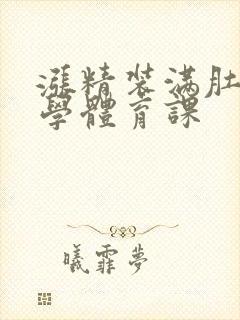 漲精装满肚
學體育課
曦霏夢